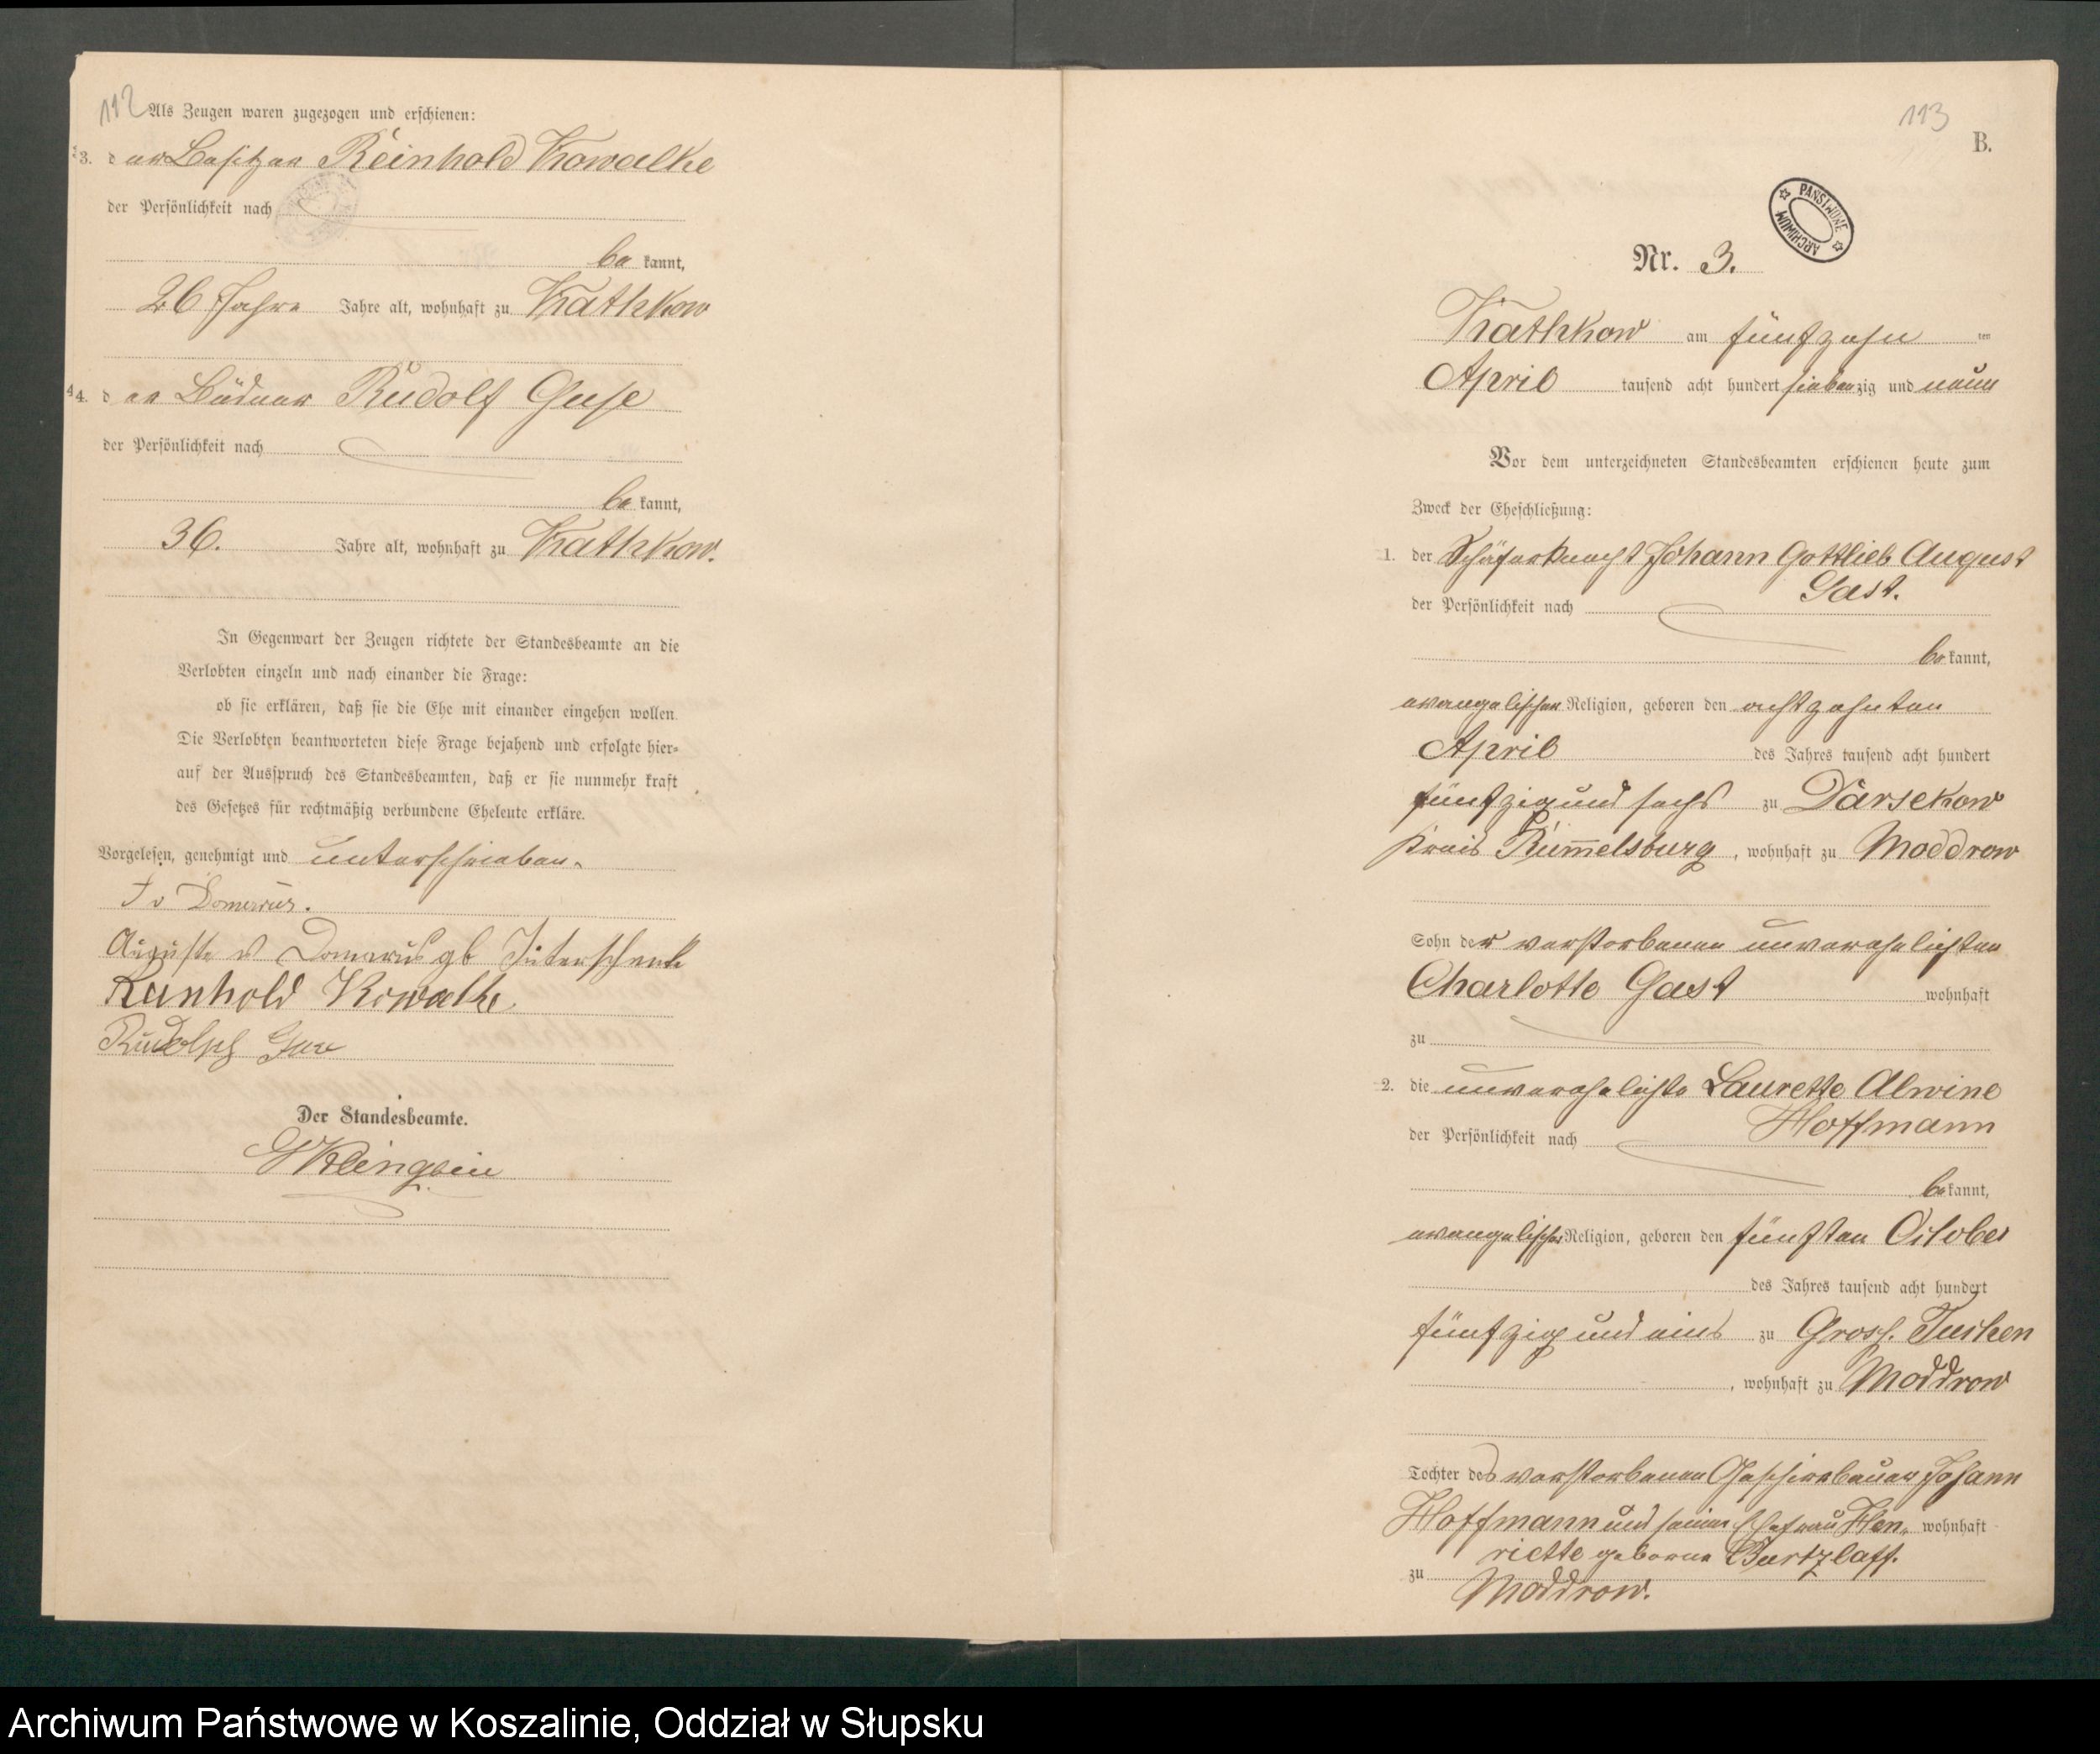 112
Als Zeugen waren zugezogen und erschienen:
3. der Besitzer Reinhold Kowalke
der Persönlichkeit nach
bekannt,
26 Jahre Jahre alt, wohnhaft zu Kathkow
4. der Büdner Rudolf Guse
der Persönlichkeit nach
bekannt,
36. Jahre alt, wohnhaft zu Kathkow.
In Gegenwart der Zeugen richtete der Standesbeamte an die
Verlobten einzeln und nach einander die Frage:
ob sie erklären, daß sie die Ehe mit einander eingehen wollen.
Die Verlobten beantworteten diese Frage bejahend und erfolgte hier-
auf der Ausspruch des Standesbeamten, daß er sie nunmehr kraft
des Gesetzes für rechtmäßig verbundene Eheleute erkläre.
Vorgelesen, genehmigt und unterschrieben.
v Domarus.
Auguste v Domarus gb
Reinhold Kowalke.
Rudolph Guse
Der Standesbeamte.
113
B.
PAŃSTWOWE ARCHIWUM
Nr. 3.
Kathkow am fünfzehn ten
April tausend acht hundert siebenzig und neun
Vor dem unterzeichneten Standesbeamten erschienen heute zum
Zweck der Eheschließung:
1. der Schäferknecht Johann Gottlieb August
Gast.
der Persönlichkeit nach
bekannt,
evangelischer Religion, geboren den achtzehnten
April des Jahres tausend acht hundert
fünfzig und sechs zu Darsekow
Kreis Rummelsburg, wohnhaft zu Moddrow
Sohn der verstorbenen unverehelichten
Charlotte Gast wohnhaft
zu
2. die unverehelichte Laurette Alwine
Hoffmann
der Persönlichkeit nach
bekannt,
evangelischer Religion, geboren den fünften October
des Jahres tausend acht hundert
fünfzig und eins zu Gross. Tuchen
, wohnhaft zu Moddrow
Tochter des verstorbenen Johann
Hoffmann und seiner Ehefrau Hen- wohnhaft
riette geborne Burtzlaff.
zu Moddrow.
Archiwum Państwowe w Koszalinie, Oddział w Słupsku